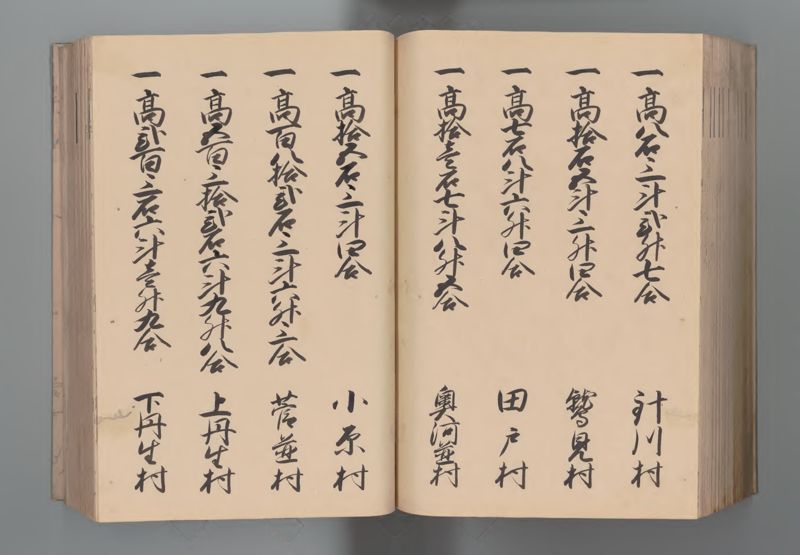 一 高八石三斗弐升七合 針川村
一 高拾石五斗三升四合 鷲見村
一 高七石八斗六升四合 田戸村
一 高拾壱石七斗八升五合 奥河並村
一 高拾五石三斗四合 小原村
一 高百八拾弐石三斗六升三合 菅並村
一 高五百三拾弐石六斗九升八合 上丹生村
一 高弐百三石六斗壱升九合 下丹生村